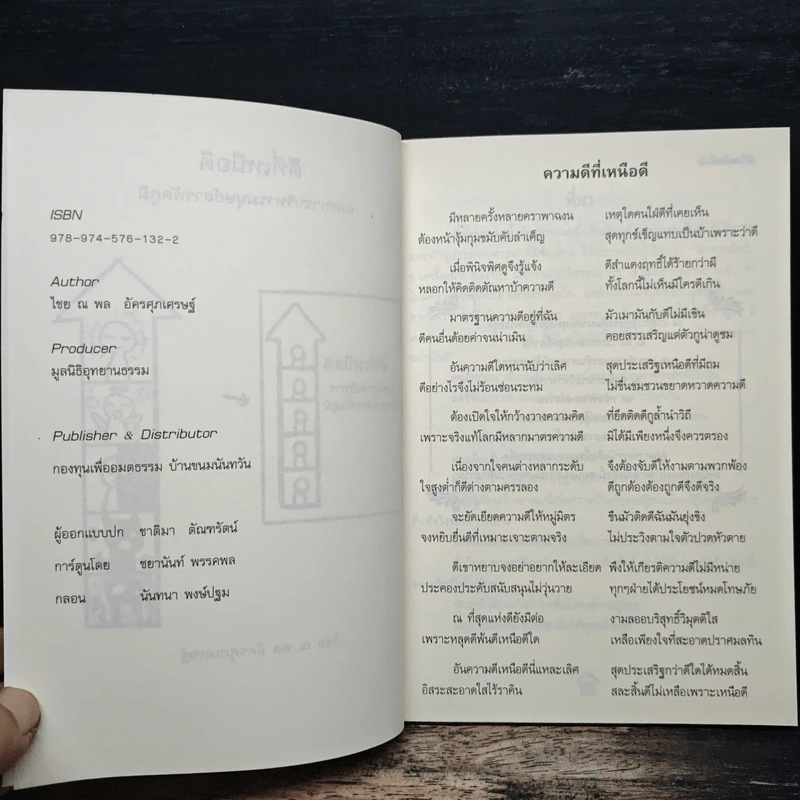 ISBN
978-974-576-132-2
Author
ไชย ณ พล อัครศุภเศรษฐ์
Producer
มูลนิธิอุทยานธรรม
Publisher & Distributor
กองทุนเพื่ออมตธรรม บ้านขนมนันทวัน
ผู้ออกแบบปก ชาติมา ตัณฑรัตน์
การ์ตูนโดย ชยานันท์ พรรคพล
กลอน นันทนา พงษ์ปฐม
ความดีที่เหนือดี
มีหลายครั้งหลายคราพาฉงน เหตุใดคนใฝ่ดีที่เคยเห็น
ต้องหน้างุ้มกุมขมับคับลำเค็ญ สุดทุกข์เข็ญแทบเป็นบ้าเพราะว่าดี
เมื่อพินิจพิศดูจึงรู้แจ้ง ดีสำแดงฤทธิ์ได้ร้ายกว่าผี
หลอกให้คิดติดตัณหาบ้าความดี ทั้งโลกนี้ไม่เห็นมีใครดีเกิน
มาตรฐานความดีอยู่ที่ฉัน มัวเมามันกับดีไม่มีเขิน
ดีคนอื่นด้อยค่าจนน่าเมิน คอยสรรเสริญแต่ตัวกูน่าดูชม
อันความดีใดหนานับว่าเลิศ สุดประเสริฐเหนือดีที่มีถม
ดีอย่างไรจึงไม่ร้อนซ่อนระทม ไม่ขื่นขมชวนขยาดหวาดความดี
ต้องเปิดใจให้กว้างวางความคิด ที่ยึดติดดีกูล้ำนำวิถี
เพราะจริงแท้โลกมีหลากมาตรความดี มิได้มีเพียงหนึ่งจึงควรตรอง
เนื่องจากใจคนต่างหลากระดับ จึงต้องจับดีให้งามตามพวกพ้อง
ใจสูงต่ำก็ดีต่างตามครรลอง ดีถูกต้องต้องถูกดีจึงดีจริง
จะยัดเยียดความดีให้หมู่มิตร ขืนมัวติดดีฉันมันยุ่งขิง
จงหยิบยื่นดีที่เหมาะเจาะตามจริง ไม่ประวิงตามใจตัวปวดหัวตาย
ดีเขาหยาบจงอย่าอยากให้ละเอียด พึงให้เกียรติความดีไม่มีหน่าย
ประคองประคับสนับสนุนไม่วุ่นวาย ทุกๆฝ่ายได้ประโยชน์หมดโทษภัย
ณ ที่สุดแห่งดียังมีต่อ งามลออบริสุทธิ์วิมุตติใส
เพราะหลุดดีพ้นดีเหนือดีใด เหลือเพียงใจที่สะอาดปราศมลทิน
อันความดีเหนือดีนี่แหละเลิศ สุดประเสริฐกว่าดีใดได้หมดสิ้น
อิสระสะอาดใสไร้ราคิน สละสิ้นดีไม่เหลือเพราะเหนือดี